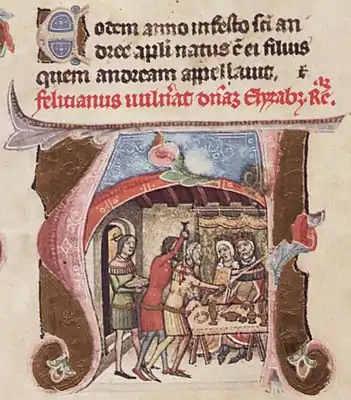 Eodem anno in festo sc̄i an
dree apl̄i natus ē ei filius
quem andream appellauit. ⁊
felitianus uuln̄at dn̄az Elyzabz. Rē.